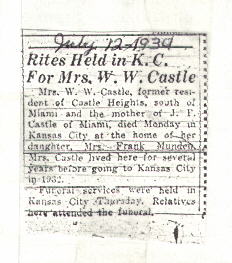 July 12-1934
Rites Held in K. C.
For Mrs. W. W. Castle
Mrs. W. W. Castle, former resi-
dent of Castle Heights, south of
Miami and the mother of J. F.
Castle of Miami, died Monday in
Kansas City at the home of her
daughter, Mrs. Frank Munden.
Mrs. Castle lived here for several
years before going to Kansas City
in 1932.
Funeral services were held in
Kansas City Thursday. Relatives
here attended the funeral.